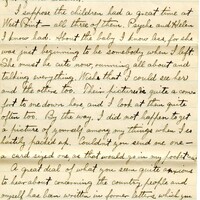 I suppose the children had a great time at
West Point – all three of them, Psyche and Helen
I know had. About the baby I know less, for she
was just beginning to be somebody when I left.
She must be cute now, running all about and
talking everything. Wish that I could see her
and the others too. Their pictures quite a com-
fort to me down here, and I look at them quite
often too. By the way, I did not happen to get
a picture of yourself among my things when I so
hastily packed up. Couldn't you send me one –
a card sized one, so that would go in my
A great deal of what you seem quite
to hear about concerning the country people and
myself has been written in former letters, which you